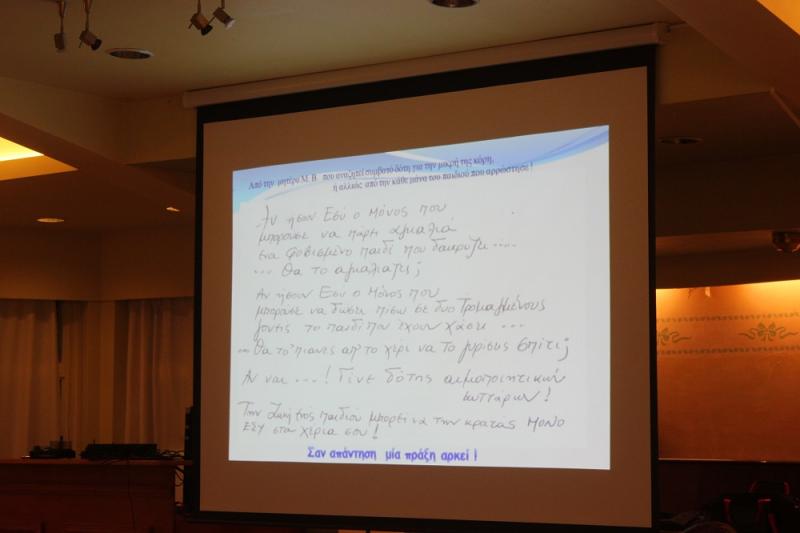 Από την μητέρα Μ. Β. που αναζητεί συμβατό δότη για την μικρή της κόρη,
ή αλλιώς από την κάθε μάνα του παιδιού που αρρώστησε !
Αν ήσουν Εσύ ο Μόνος που
μπορούσε να πάρει αγκαλιά
ένα φοβισμένο παιδί που δακρύζει ....
... Θα το αγκάλιαζες;
Αν ήσουν Εσύ ο Μόνος που
μπορούσε να δώσει πίσω σε δυο Τρομαγμένους
γονείς το παιδί που έχουν χάσει ...
... Θα το 'πιανες απ' το χέρι να το γυρίσεις Σπίτι;
Αν ναι ...! Γίνε δότης αιμοποιητικών
κυττάρων !
Την Ζωή ενός παιδιού μπορεί να την κρατάς ΜΟΝΟ
ΕΣΥ στα χέρια σου !
Σαν απάντηση μία πράξη αρκεί !